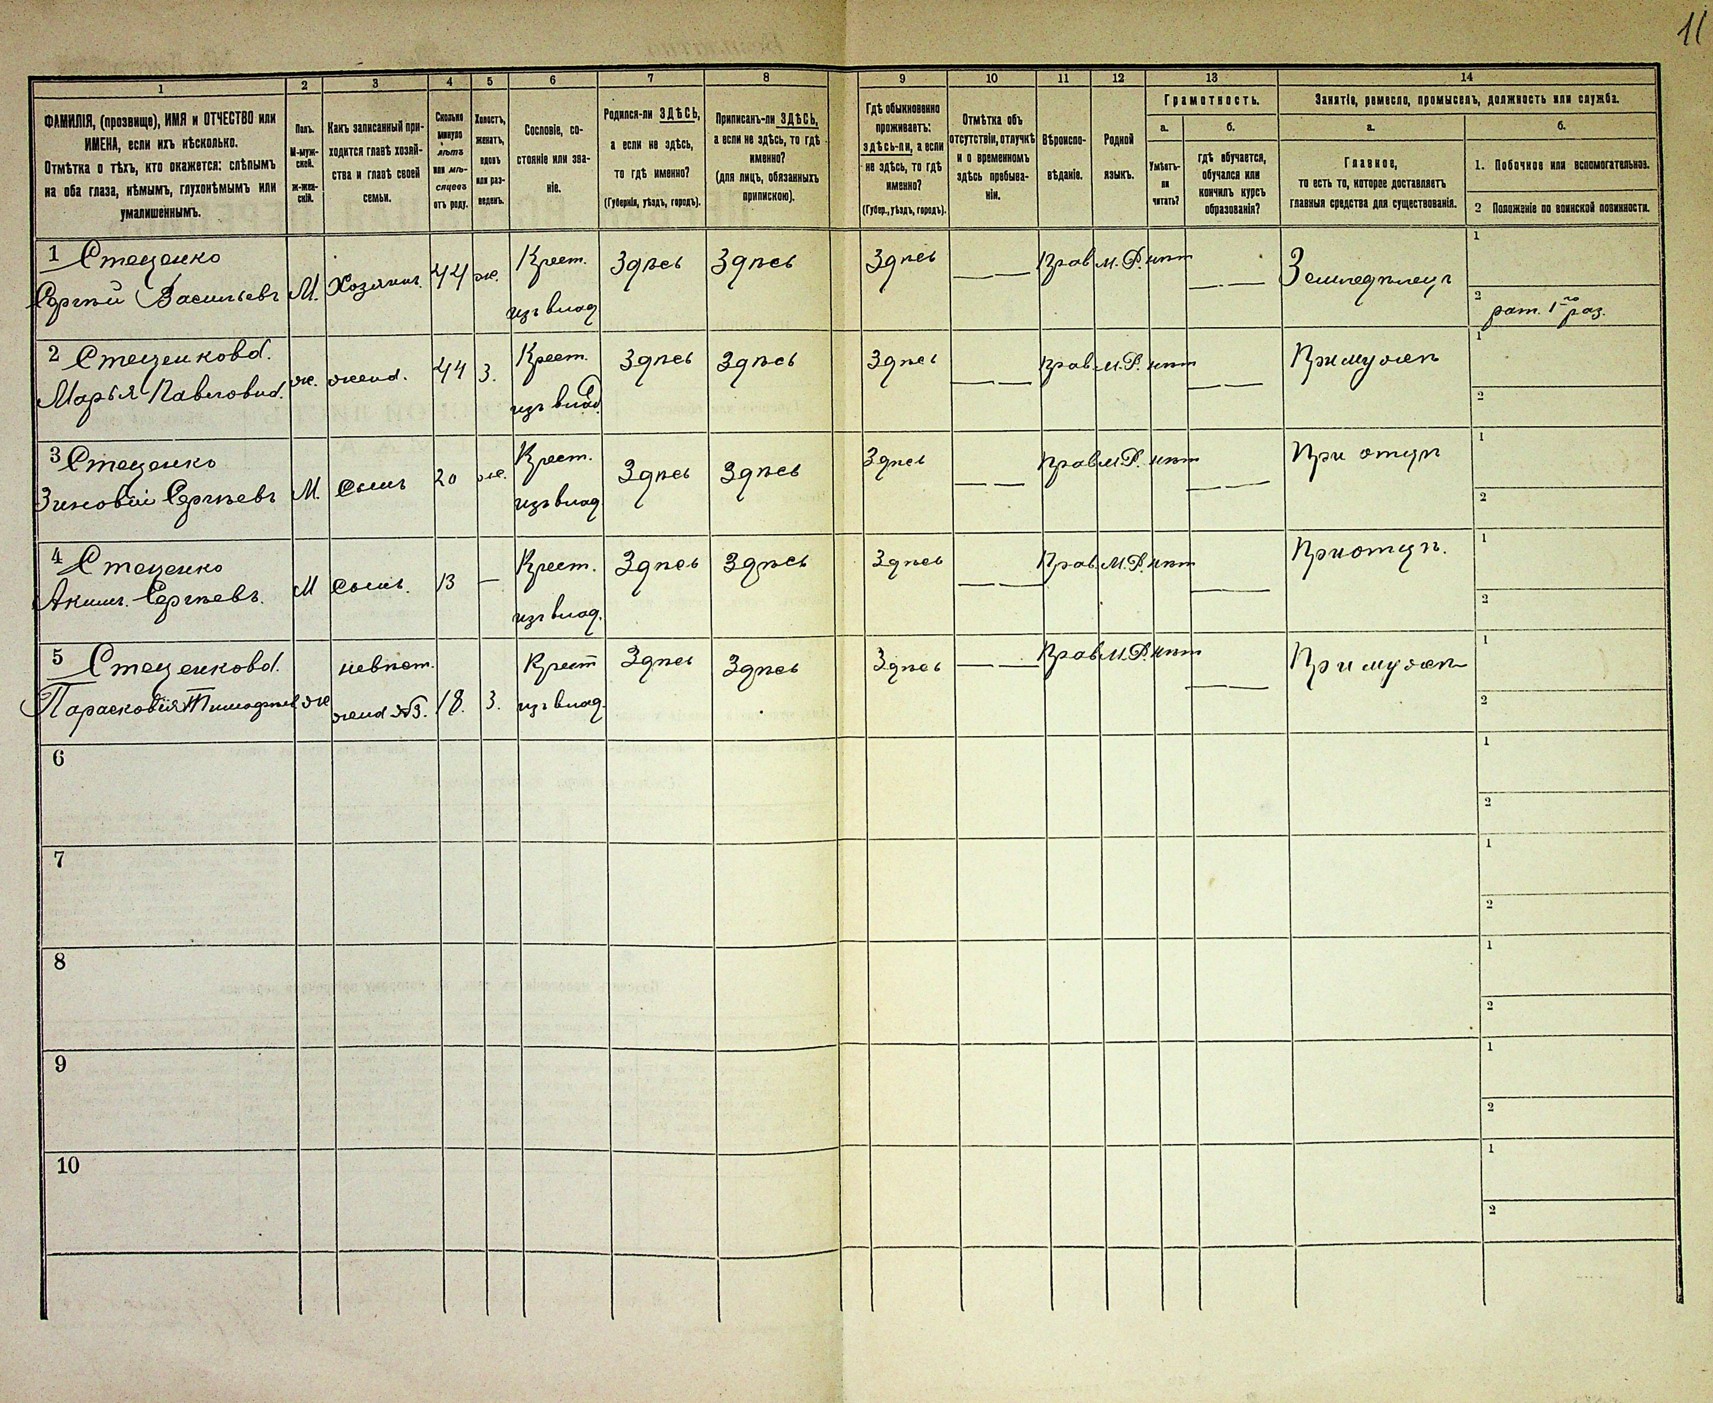 11
1 2 3 4 5 6 7 8 9 10 11 12 13 14
ФАМИЛІЯ, (прозвище), ИМЯ и ОТЧЕСТВО или
ИМЕНА, если ихъ нѣсколько.
Отмѣтка о тѣхъ, кто окажется: слѣпымъ
на оба глаза, нѣмымъ, глухонѣмымъ или
умалишеннымъ.
Полъ.
М-муж-
ской.
ж-жен-
скій.
Какъ записанный при-
ходится главѣ хозяй-
ства и главѣ своей
семьи.
Сколько
минуло
лѣтъ
или мѣ-
сяцевъ
отъ роду.
Холостъ,
женатъ,
вдовъ
или раз-
веденъ.
Сословіе, со-
стояніе или зва-
ніе.
Родился-ли ЗДѢСЬ,
а если не здѣсь,
то гдѣ именно?
(Губернія, уѣздъ, городъ).
Приписанъ-ли ЗДѢСЬ,
а если не здѣсь, то гдѣ
именно?
(для лицъ, обязанныхъ
припискою).
Гдѣ обыкновенно
проживаетъ:
здѣсь-ли, а если
не здѣсь, то гдѣ
именно?
(Губер., уѣздъ, городъ).
Отмѣтка объ
отсутствіи, отлучкѣ
и о временномъ
здѣсь пребыва-
ніи.
Вѣроиспо-
вѣданіе.
Родной
языкъ.
Грамотность.
а.
Умѣетъ-
ли
читать?
б.
гдѣ обучается,
обучался или
кончилъ курсъ
образованія?
Занятіе, ремесло, промыселъ, должность или служба.
а.
Главное,
то есть то, которое доставляетъ
главныя средства для существованія.
б.
1. Побочное или вспомогательное.
2 Положеніе по воинской повинности.
1 Стеценко
Сергѣй Васильевъ М. Хозяинъ. 44 ж. Крест. Здѣсь Здѣсь Здѣсь Прав. М.Р. нѣтъ Земледѣлецъ 1
изъ влад. 2 рат. 1го раз.
2 Стеценкова.
Марья Павловна. ж. жена. 44 З. Крест. Здѣсь Здѣсь Здѣсь Прав. М.Р. нѣтъ При мужѣ 1
изъ влад. 2
3 Стеценко
Зиновій Сергѣевъ М. Сынъ 20 ж. Крест. Здѣсь Здѣсь Здѣсь Прав. М.Р. нѣтъ При отцѣ 1
изъ влад. 2
4 Стеценко
Акимъ. Сергѣевъ. М Сынъ. 13 — Крест. Здѣсь Здѣсь Здѣсь Прав. М.Р. нѣтъ При отцѣ. 1
изъ влад. 2
5 Стеценкова. невѣст. Крест Здѣсь Здѣсь Здѣсь Прав. М.Р. нѣтъ При мужѣ 1
Парасковія Тимофѣев ж жена №3. 18. З. изъ влад. 2
6 1
2
7 1
2
8 1
2
9 1
2
10 1
2